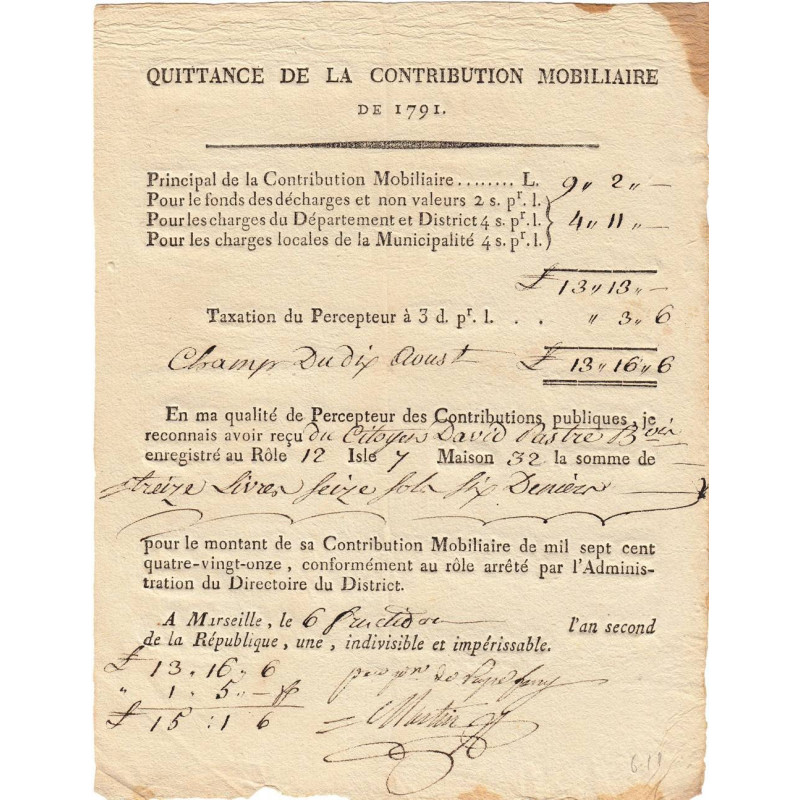 QUITTANCE DE LA CONTRIBUTION MOBILIAIRE
DE 1791.
Principal de la Contribution Mobiliaire........ L. 9 „ 2 „ —
Pour le fonds des décharges et non valeurs 2 s. pr. l.
Pour les charges du Département et District 4 s. pr. l. 4 „ 11 „ —
Pour les charges locales de la Municipalité 4 s. pr. l.
₤ 13 „ 13 „ —
Taxation du Percepteur à 3 d. pr. l. . . „ 3 „ 6
Champ Du dix Aoust ₤ 13 „ 16 „ 6
En ma qualité de Percepteur des Contributions publiques, je
reconnais avoir reçu du Citoyen David Pastre
enregistré au Rôle 12 Isle 7 Maison 32 la somme de
treize Livres seize sols six Deniers
pour le montant de sa Contribution Mobiliaire de mil sept cent
quatre-vingt-onze, conformément au rôle arrêté par l'Adminis-
tration du Directoire du District.
A Marseille, le 6 fructidor l'an second
de la République, une, indivisible et impérissable.
₤ 13 „ 16 „ 6
„ 1 „ 5 „ —
₤ 15 : 1 6
Martin